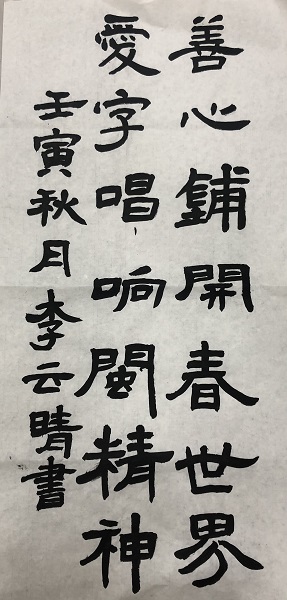 善心鋪開春世界
愛字唱响閩精神
壬寅秋月李云晴書